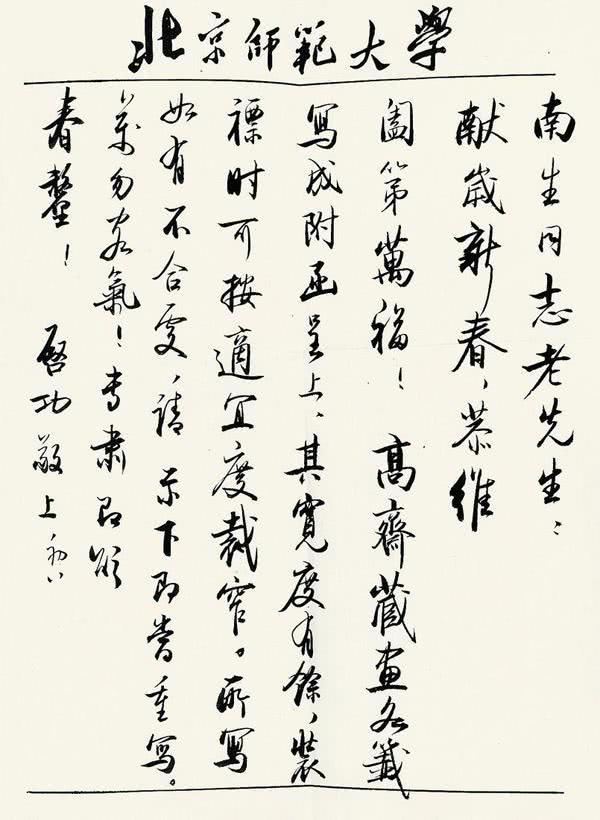 北京师範大學
南生同志老先生：
献歲新春，恭維
闔第萬福！ 高齋藏画名籤
寫成附函呈上、其寬度有餘，裝
裱时可按適宜度裁窄。所写
如有不合處，請示下即當重写。
萬勿客氣！专肅即頌
春釐！ 啓功敬上 初八